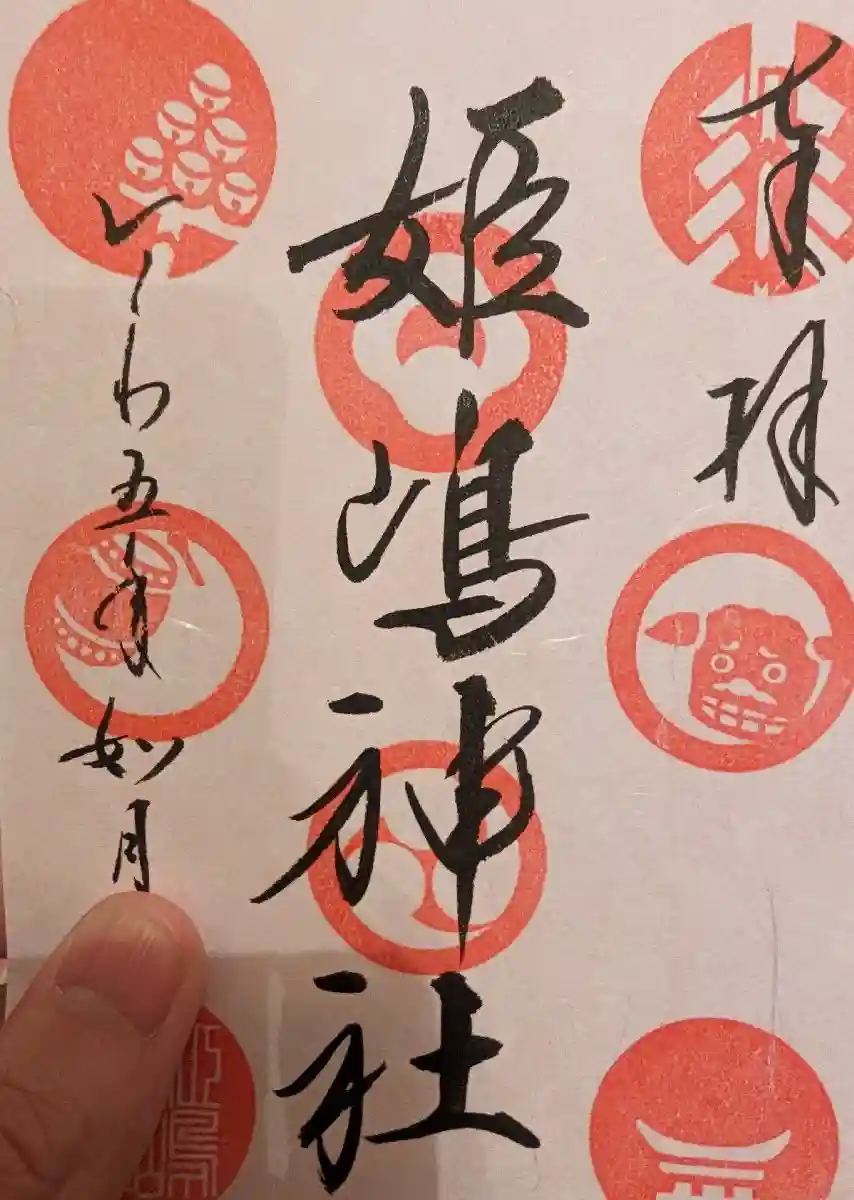 奉拝
姫嶋神社
令和五年如月